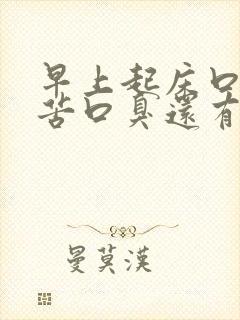 早上起床口
苦口臭還有
曼莫漢